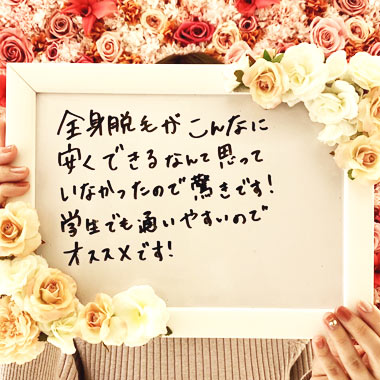 全身脱毛がこんなに
安くできるなんて思って
いなかったので驚きです!
学生でも通いやすいので
オススメです!